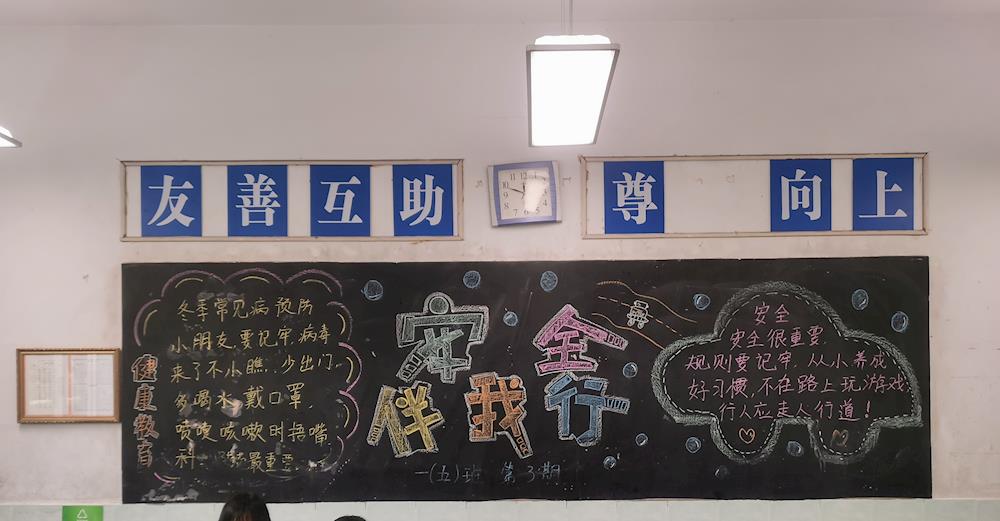 友善互助
尊 向上
冬季常见病预防
小朋友要记牢,病毒
来了不小瞧,少出门,
多喝水,戴口罩,
喷嚏咳嗽时捂嘴
科 最重要
健康教育
安全
伴我行
一(五)班 第3期
安全
安全很重要,
规则要记牢,从小养成
好习惯,不在路上玩游戏,
行人应走人行道!
12
11
1
10
2
9
3
8
7
6
5